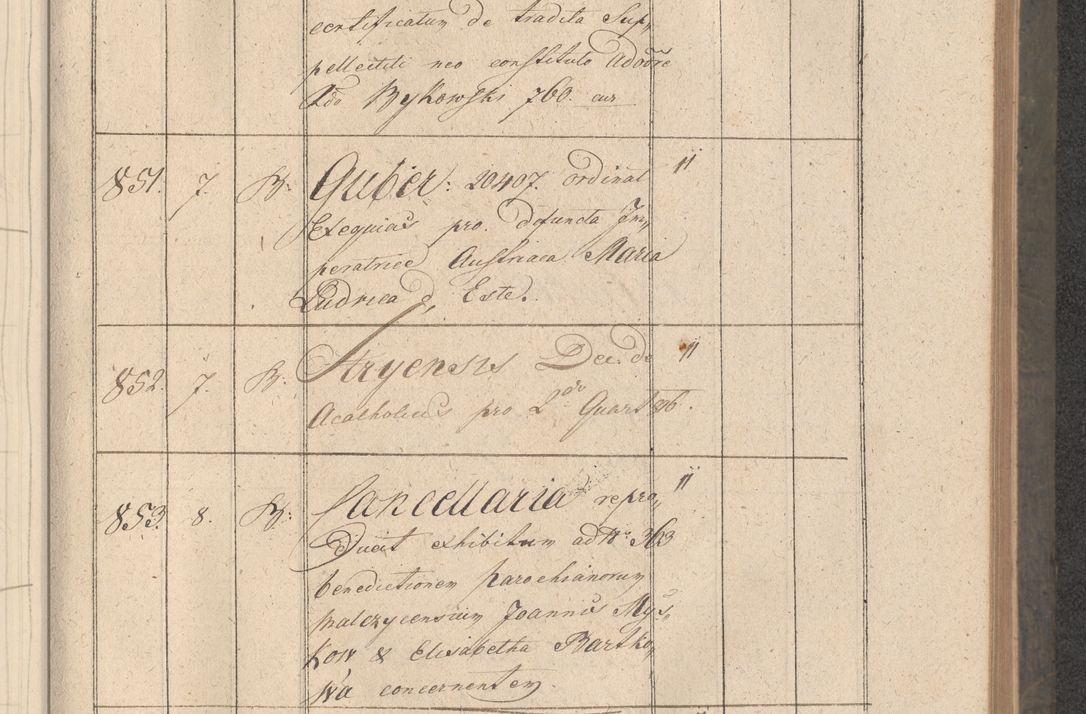 certificatum de tradita Sup„
pellectili neo constituto Adōōre
Ado Bykowski 760. cur
851. 7. Guber: 20407. ordinat "
Exequias pro. defuncta Im„
peratrice Austriaca Maria
Ludvica d, Este.
852. 7. Stryensis Dec. de "
Acatholicis pro 2do Quart
853. 8. Cancellaria repro„ "
Ducit exhibitum ad No 363
benedictionem parochianorum
malczycensium Joannis Mys„
kow & Elisabetha Bartko„
wa concernentem